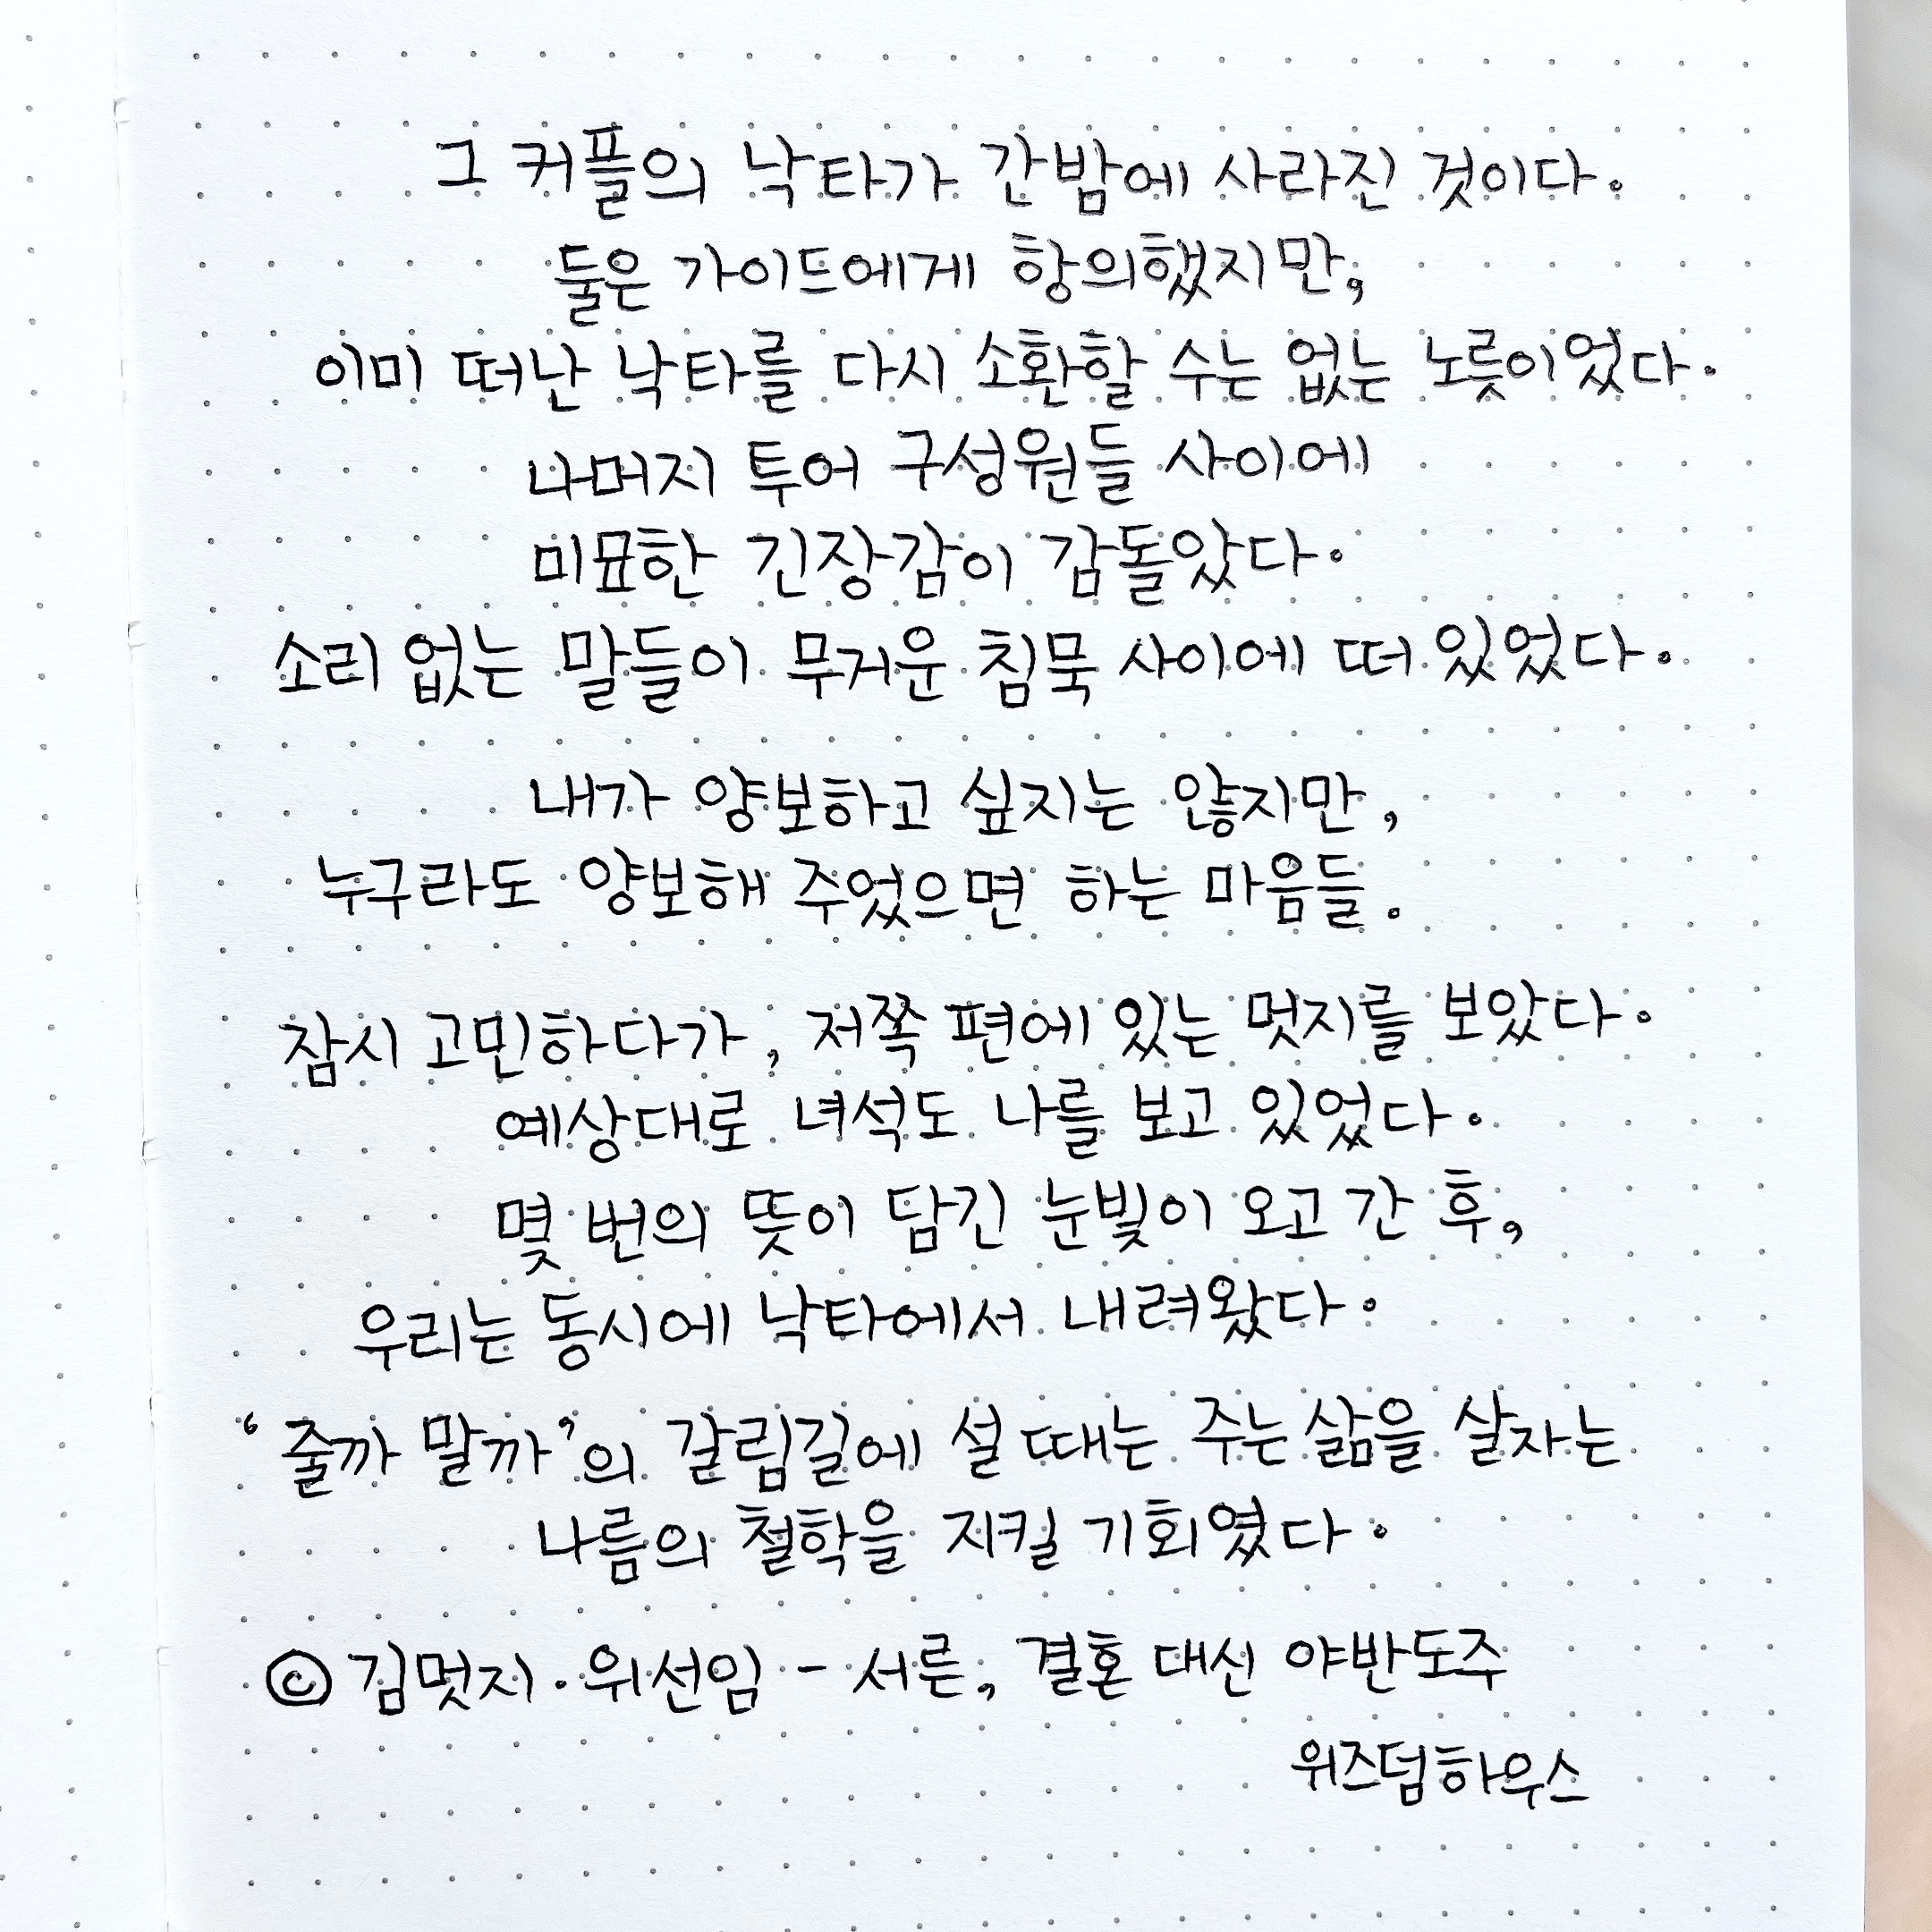 그 커플의 낙타가 간밤에 사라진 것이다.
둘은 가이드에게 항의했지만,
이미 떠난 낙타를 다시 소환할 수는 없는 노릇이었다.
나머지 투어 구성원들 사이에
미묘한 긴장감이 감돌았다.
소리 없는 말들이 무거운 침묵 사이에 떠 있었다.
내가 양보하고 싶지는 않지만,
누구라도 양보해 주었으면 하는 마음들.
잠시 고민하다가, 저쪽 편에 있는 멋지를 보았다.
예상대로 녀석도 나를 보고 있었다.
몇 번의 뜻이 담긴 눈빛이 오고 간 후,
우리는 동시에 낙타에서 내려왔다.
‘줄까 말까’의 갈림길에 설 때는 주는 삶을 살자는
나름의 철학을 지킬 기회였다.
© 김멋지·위선임 - 서른, 결혼 대신 야반도주
위즈덤하우스